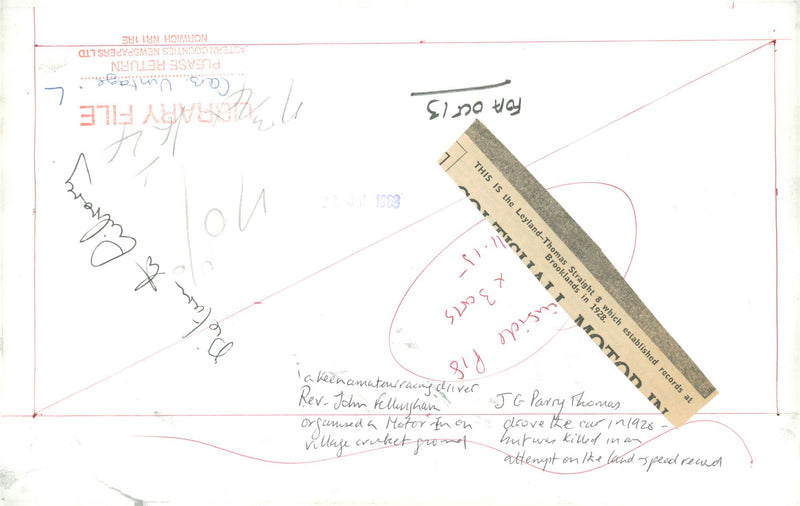 LIBRARY FILE
PLEASE RETURN
EASTERN COUNTIES NEWSPAPERS LTD
NORWICH NR1 1RE
Cars Vintage: L
FOR OCT 13
1988
THIS IS the Leyland-Thomas Straight 8 which established records at
Brooklands in 1928.
COLTISHALL MOTOR IN
11.15
x 3 cols
inside P18
a keen amateur racing driver
Rev. John Fellingham
organised a Motor In on
village cricket ground
J G Parry Thomas
drove the car in 1928 -
but was killed in an
attempt on the land-speed record